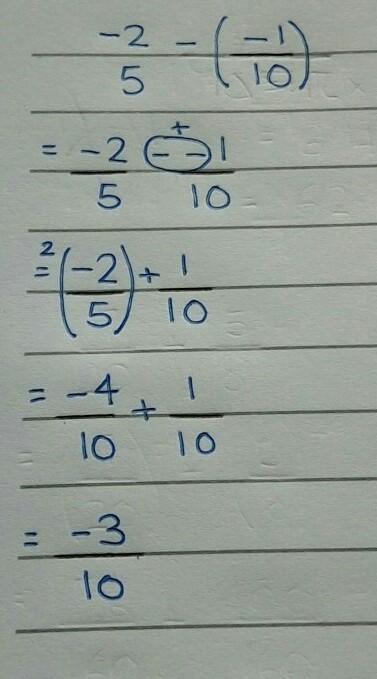 -2/5 - (-1/10)
+
= -2/5 - -1/10
= 2(-2/5) + 1/10
= -4/10 + 1/10
= -3/10